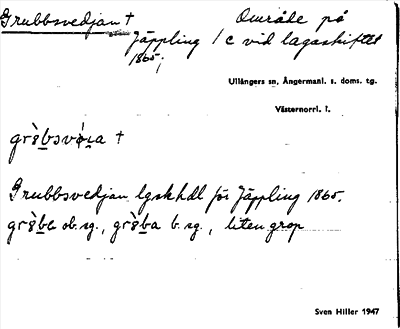 Grubbsvedjan † Område på
Jäppling 1c vid lagaskiftet
1865;
Ullångers sn, Ångermanl. s. doms. tg.
Västernorrl. l.
†
Grubbsvedjan lgskhdl för Jäppling 1865.
ob. sg., b. sg., liten grop
Sven Hiller 1947